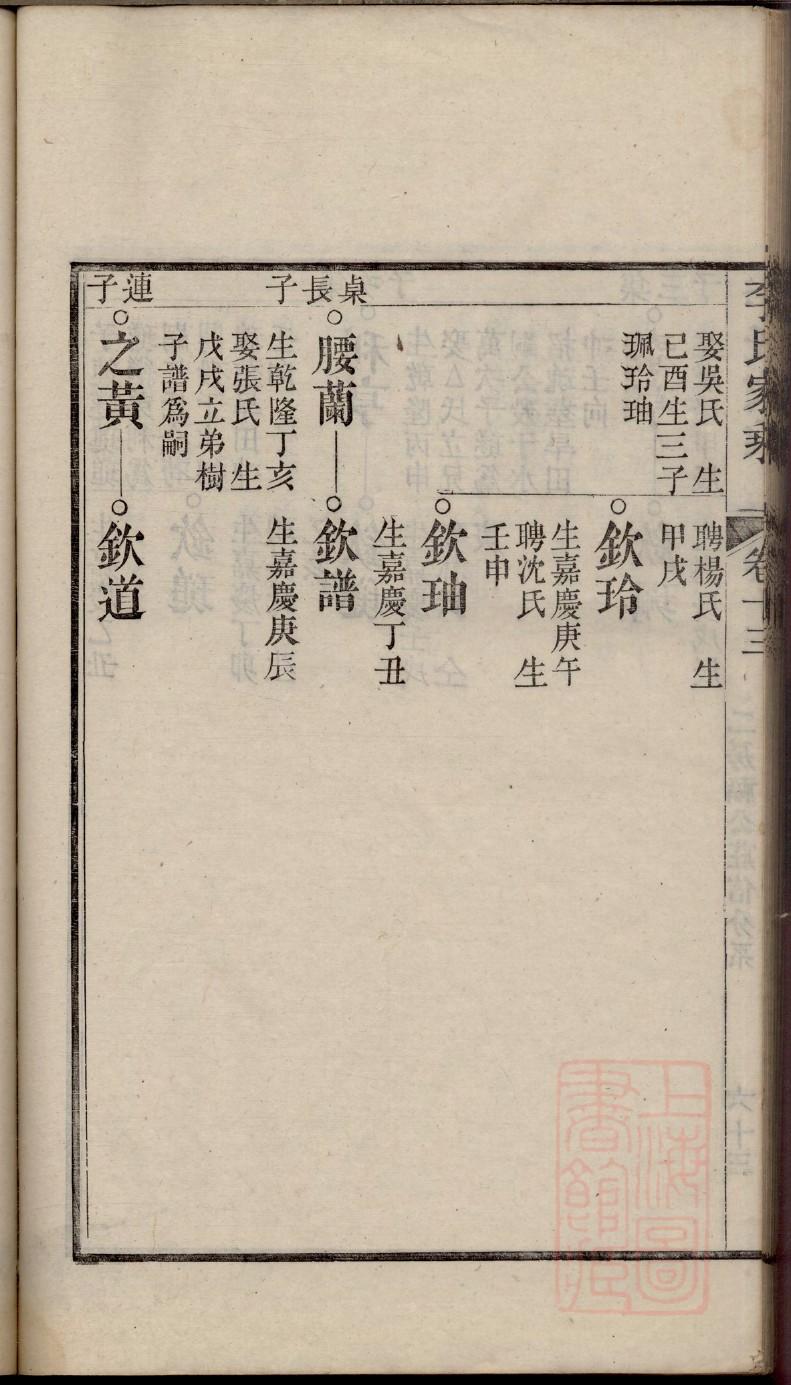 李氏家乘
卷十三
娶吳氏　生
己酉生三子
珮玲㺷
聘楊氏　生
甲戌
欽玲
生嘉慶庚午
聘沈氏　生
壬申
欽㺷
生嘉慶丁丑
桌長子
腰蘭
生乾隆丁亥
娶張氏　生
戊戌立弟樹
子譜爲嗣
欽譜
生嘉慶庚辰
連子
之黃
欽道
上海圖
書館藏